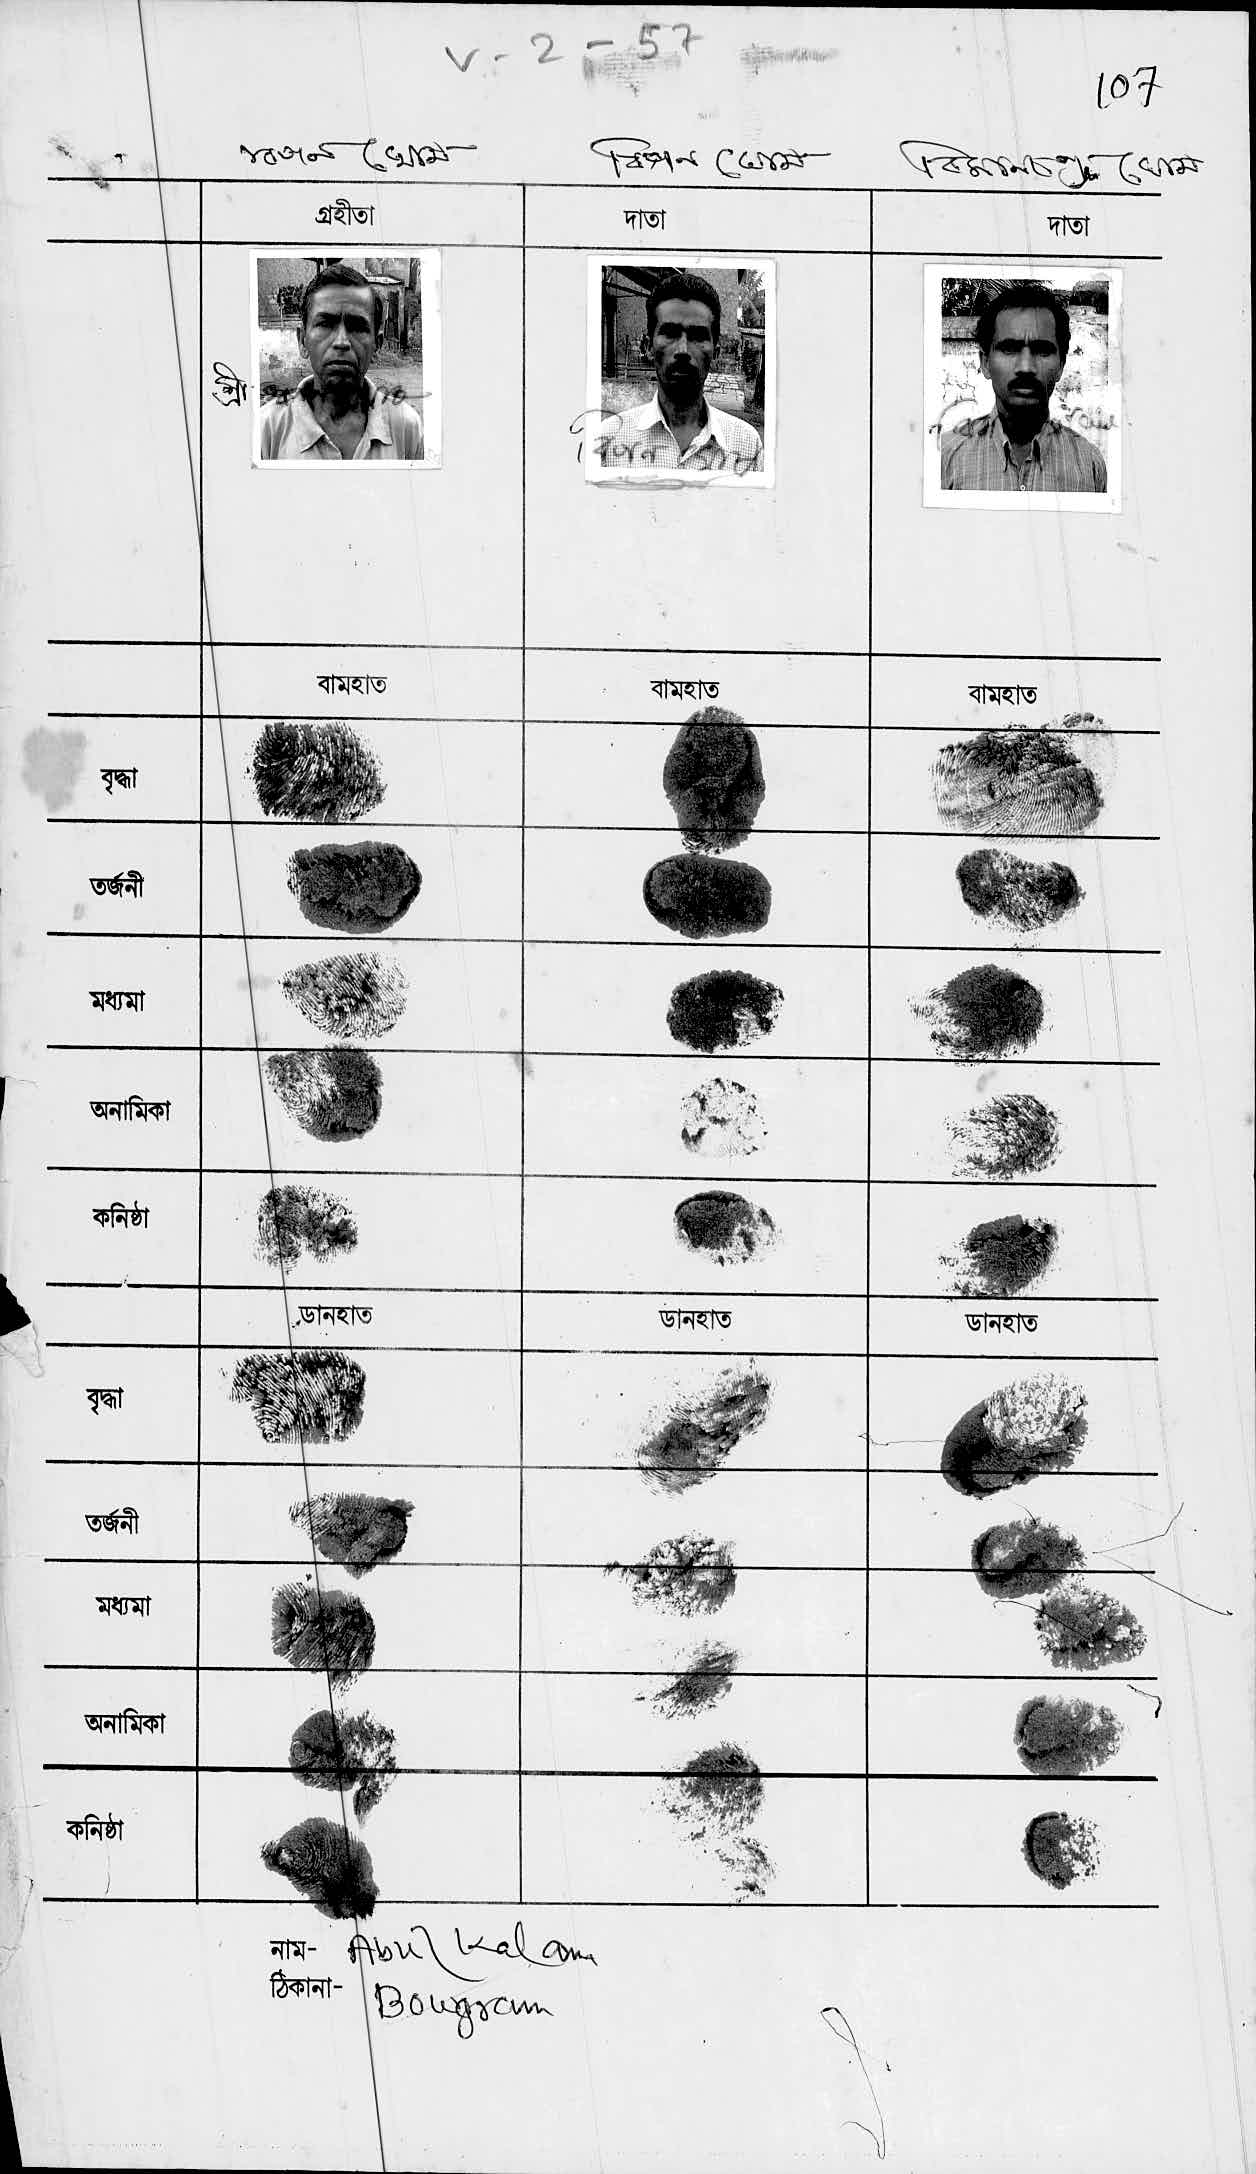 V-2-57
107
ঘোষ বিপন ঘোষ বিমানচন্দ্র ঘোষ
গ্রহীতা দাতা দাতা
শ্রী
বিপন ঘোষ
বামহাত বামহাত বামহাত
বৃদ্ধা
তর্জনী
মধ্যমা
অনামিকা
কনিষ্ঠা
ডানহাত ডানহাত ডানহাত
বৃদ্ধা
তর্জনী
মধ্যমা
অনামিকা
কনিষ্ঠা
নাম- Abul Kalam
ঠিকানা- Bowgram